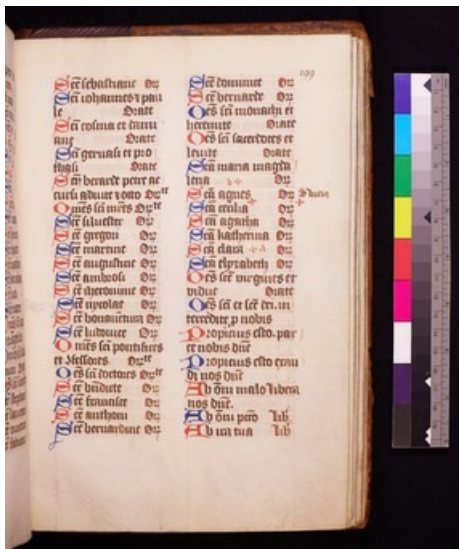 199
Scē sebastiane Or
Scī iohannes ⁊ pau
le Orate
Scī cosma et dami
ane Orate
Scī geruasi et pro
thasi Orate
Scī berarde petre ac
cursi adiute ⁊ otto Orte
Om̄es scī mr̄es Orte
Scē siluester Or
Scē gregori Or
Scē martine Or
Scē augustine Or
Scē ambrosi Or
Scē iheronime Or
Scē nycolae Or
Scē bonauentura Or
Scē ludouice Or
Om̄es scī pontifices
et 9fessores Orte
Oēs scī doctores Orte
Scē bn̄dicte Or
Scē francisce Or
Scē anthoni Or
Scē bernardine Or
Scē dominice Or
Scē bernarde Or
Oēs scī monachi et
heremite Orate
Oēs scī sacerdotes et
leuite Orate
Scā maria magda
lena Or
Scā agnes Or S lucia
Scā cecilia Or
Scā agatha Or
Scā katherina Or
Scā clara Or
Scā elyzabeth Or
Oēs scē virgines et
vidue Orate
Oēs scī et scē dei in
tercedite p nobis
Propicius esto. par
ce nobis dn̄e
Propicius esto exau
di nos dn̄e
Ab om̄i malo libera
nos dn̄e.
Ab om̄i pctō lib
Ab ira tua lib